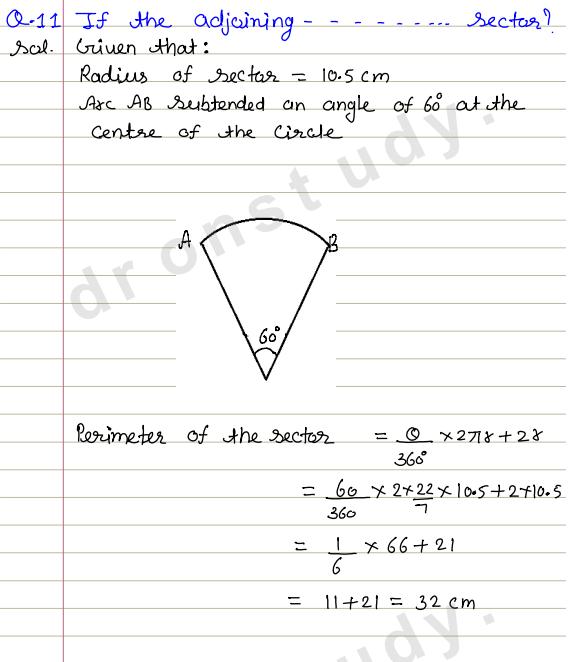 Q.11 If the adjoining - - - - - ..... sector?
sol. Given that:
Radius of sector = 10.5 cm
Arc AB subtended an angle of 60° at the
centre of the circle
A B
60°
Perimeter of the sector = θ/360° × 2πr + 2r
= 60/360 × 2 × 22/7 × 10.5 + 2 × 10.5
= 1/6 × 66 + 21
= 11 + 21 = 32 cm
dronstudy.
study.